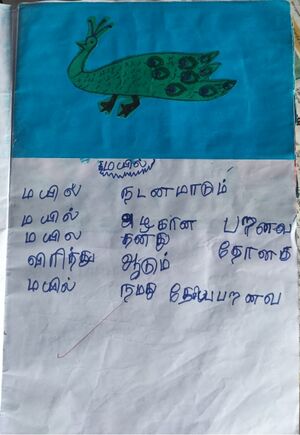 மயில்
மயில் நடனமாடும்
மயில் அழகான பறவை
மயில தனது தோகை
விரித்து ஆடும்
மயில் நமது தேசியபறவை